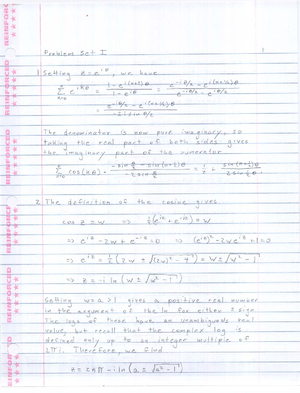 Problem Set I
1
1. Setting z = e^{iθ}, we have
Σ_{k=0}^{n} e^{ikθ} = (1 - e^{i(n+1)θ}) / (1 - e^{iθ}) = (e^{-iθ/2} - e^{i(n+½)θ}) / (e^{-iθ/2} - e^{iθ/2})
= (e^{-iθ/2} - e^{i(n+½)θ}) / (-2i sin θ/2)
The denominator is now pure imaginary, so
taking the real part of both sides gives
the imaginary part of the numerator
Σ cos(kθ) = (-sin θ/2 - sin(n+½)θ) / (-2 sin θ/2) = 1/2 + sin(n+½)θ / (2 sin ½θ)
2. The definition of the cosine gives
cos z = w ⇒ ½(e^{iz} + e^{-iz}) = w
⇒ e^{iz} - 2w + e^{-iz} = 0 ⇒ (e^{iz})² - 2w e^{iz} + 1 = 0
⇒ e^{iz} = ½(2w ± √((2w)² - 4)) = w ± √(w² - 1)
⇒ z = -i ln(w ± √(w² - 1))
Setting w = a > 1 gives a positive real number
in the argument of the ln for either ± sign
The logs of these have an unambiguous real
value, but recall that the complex log is
defined only up to an integer multiple of
2πi. Therefore, we find
z = 2nπ - i ln(a ± √(a² - 1))
REINFORCED
REINFORCED
REINFORCED
REINFORCED